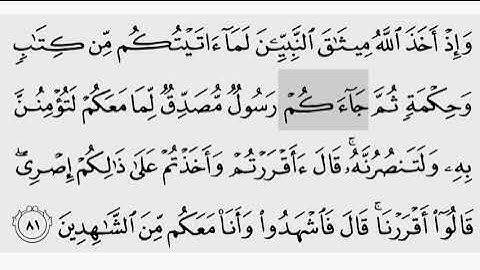 وَإِذۡ أَخَذَ ٱللَّهُ مِيثَٰقَ ٱلنَّبِيِّـۧنَ لَمَآ ءَاتَيۡتُكُم مِّن كِتَٰبٖ
وَحِكۡمَةٖ ثُمَّ جَآءَكُمۡ رَسُولٞ مُّصَدِّقٞ لِّمَا مَعَكُمۡ لَتُؤۡمِنُنَّ
بِهِۦ وَلَتَنصُرُنَّهُۥۚ قَالَ ءَأَقۡرَرۡتُمۡ وَأَخَذۡتُمۡ عَلَىٰ ذَٰلِكُمۡ إِصۡرِيۖ
قَالُوٓاْ أَقۡرَرۡنَاۚ قَالَ فَٱشۡهَدُواْ وَأَنَا۠ مَعَكُم مِّنَ ٱلشَّٰهِدِينَ ٨١